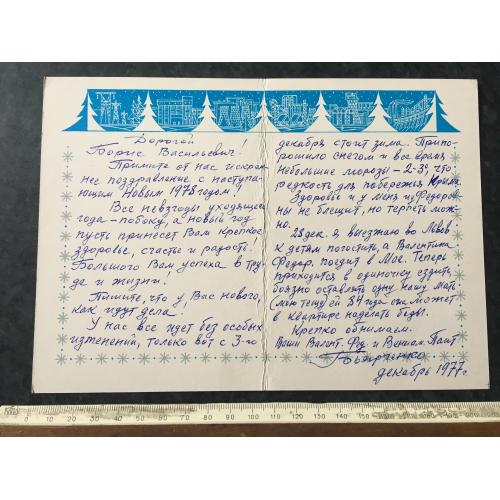 Дорогой
Борис Васильевич!
Примите от нас искрен-
нее поздравление с наступа-
ющим Новым 1978 годом!
Все невзгоды уходящего
года - побоку, а новый год
пусть принесет Вам крепкое
здоровье, счастье и радость!
Большого Вам успеха в тру-
де и жизни.
Пишите, что у Вас нового,
как идут дела!
У нас все идет без особых
изменений, только вот с 3-го
декабря стоит зима. Припо-
рошило снегом и все время
небольшие морозы - 2-3°, что
редкость для побережья Крыма
Здоровье и у меня и Федоров-
ны не блещит, но терпеть мож-
но.
28 дек. я выезжаю во Львов
к детям погостить, а Валентина
Федор. поедит в Мае. Теперь
приходится в одиночку ездить,
боязно оставлять одну нашу мать
(мою тещу) ей 84 года может
в квартире наделать беды.
Крепко обнимаем.
Ваши Валент. Фед и Вениам.
декабрь 1977 г
0 10 20 30 40 50 60 70 80 90 100 110 120 130 140 150 160 170 180 190 200 210 220 230